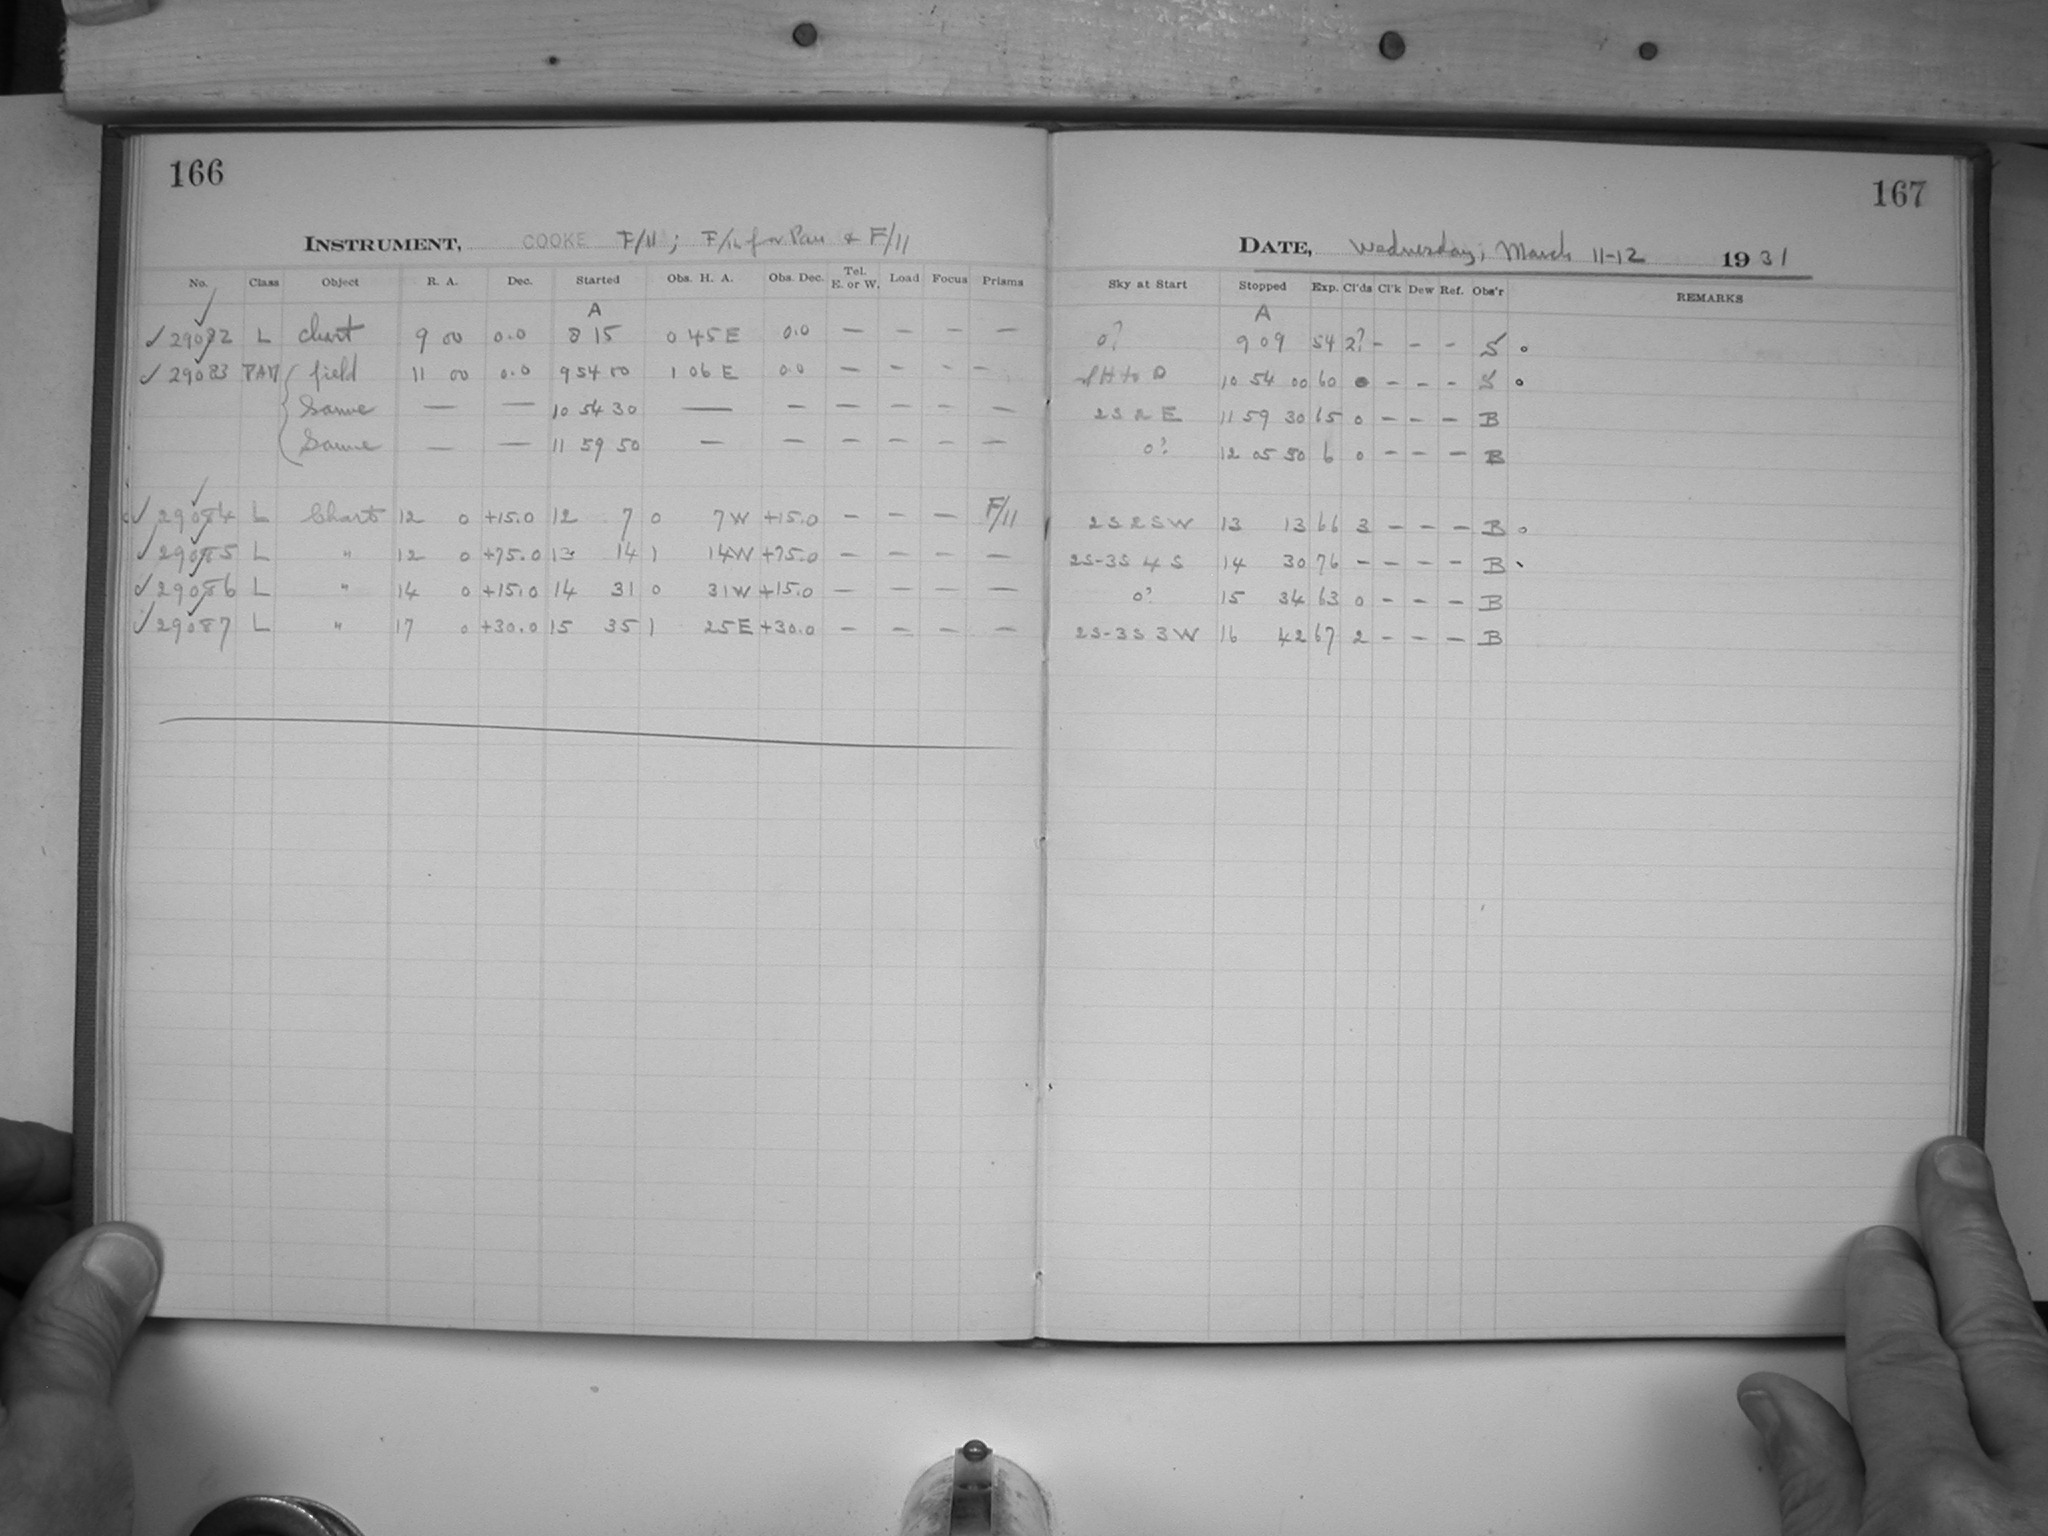 166
INSTRUMENT, COOKE F/11; for Pan & F/11
No. Class Object R. A. Dec. Started Obs. H. A. Obs. Dec. Tel. E. or W. Load Focus Prisms
A
✓ 29082 L Chart 9 00 0.0 8 15 0 45 E 0.0 — — — —
✓ 29083 PAN field 11 00 0.0 9 54 00 1 06 E 0.0 — — — —
Same — — 10 54 30 — — — — — —
Same — — 11 59 50 — — — — — —
✓ 29084 L Chart 12 0 +15.0 12 7 0 7W +15.0 — — — F/11
✓ 29085 L " 12 0 +75.0 13 14 1 14W +75.0 — — — —
✓ 29086 L " 14 0 +15.0 14 31 0 31W +15.0 — — — —
✓ 29087 L " 17 0 +30.0 15 35 1 25E +30.0 — — — —
167
DATE, Wednesday, March 11-12 1931
Sky at Start Stopped Exp. Cl'ds Cl'k Dew Ref. Obs'r REMARKS
A
0? 9 09 54 2? - - - S
10 54 00 60 - - - S
2S 2 E 11 59 30 65 0 - - - B
0? 12 05 50 6 0 - - - B
2S 2 SW 13 13 66 3 - - - B
2S-3S 4 S 14 30 76 - - - - B
0? 15 34 63 0 - - - B
2S-3S 3W 16 42 67 2 - - - B